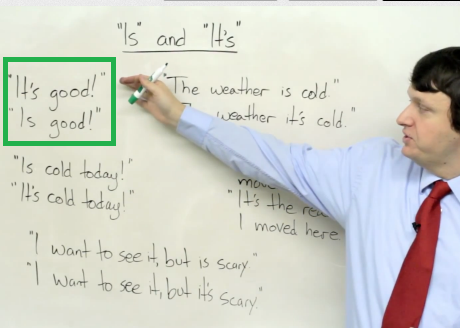 "Is" and "It's"
"It's good!"
"Is good!"
"The weather is cold."
weather it's cold."
"Is cold today!"
"It's cold today!"
move
"It's the
I moved here
"I want to see it, but is scary."
"I want to see it, but it's scary."